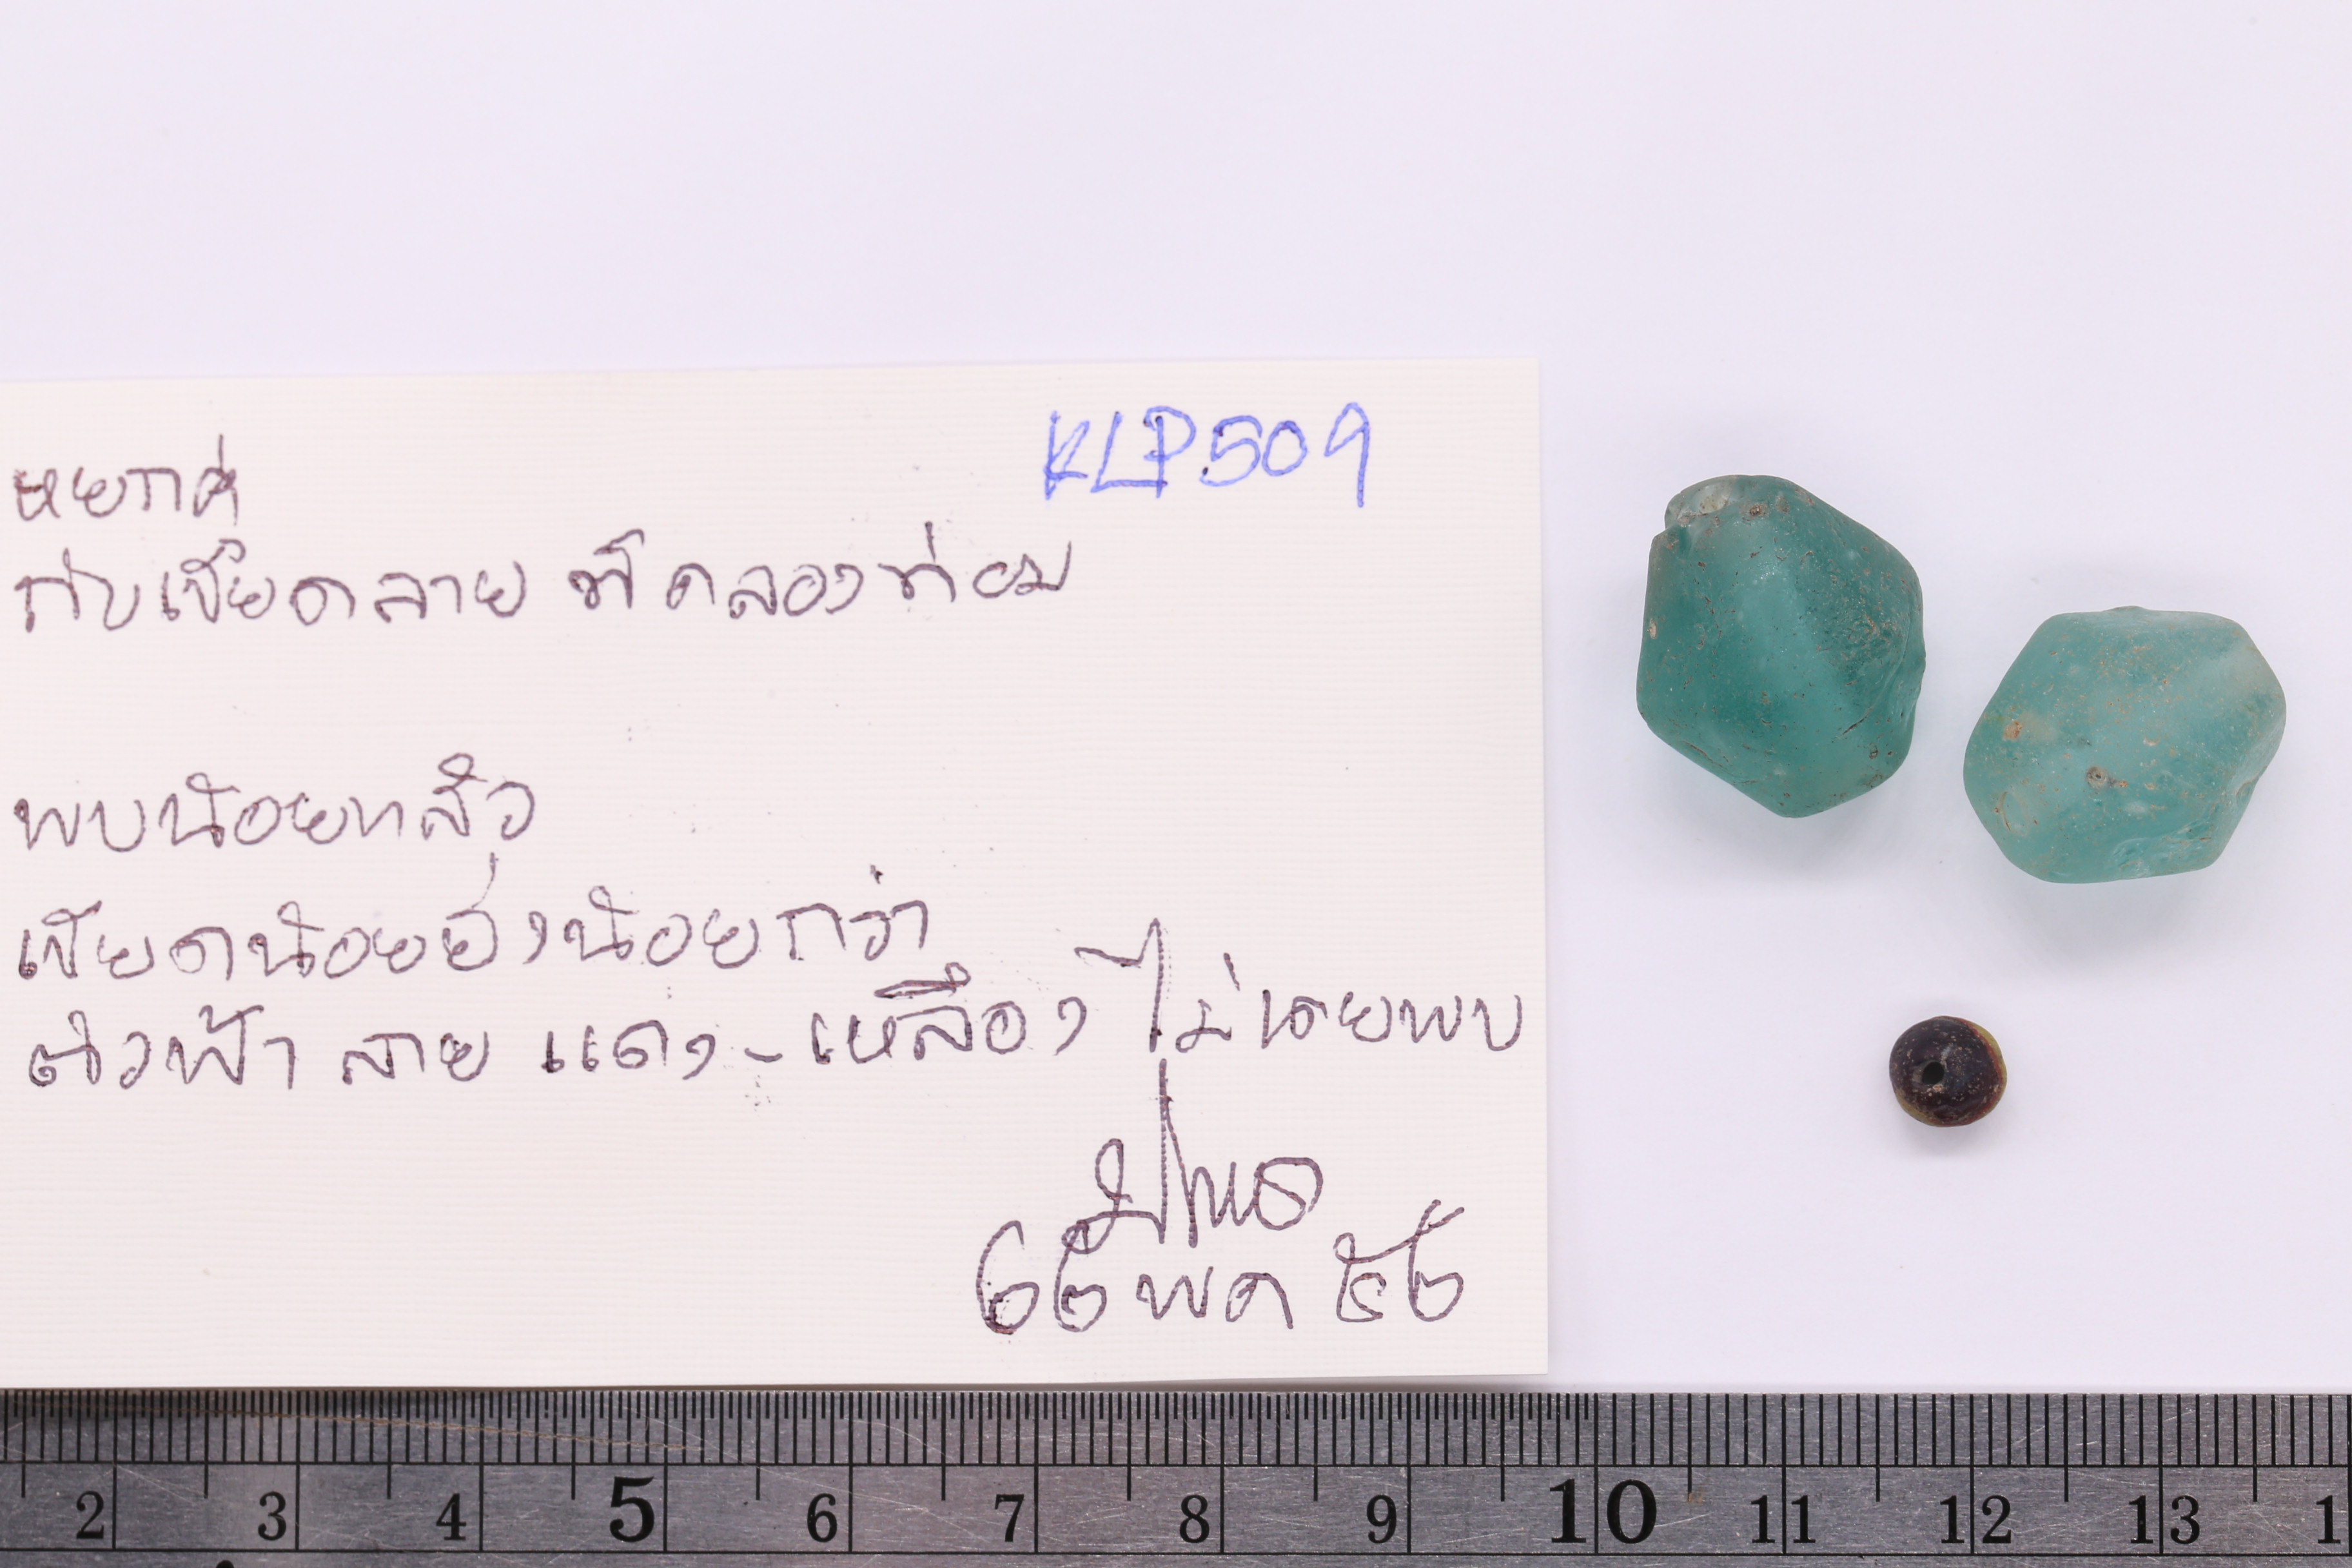 KLP509
หยกคู่
กับเขียดลาย ที่คลองท่อม
พบน้อยแล้ว
เขียดน้อยยิ่งน้อยกว่า
ตัวฟ้า ลาย แดง-เหลือง ไม่เคยพบ
๒๒ พค ๕๒
2 3 4 5 6 7 8 9 10 11 12 13 1